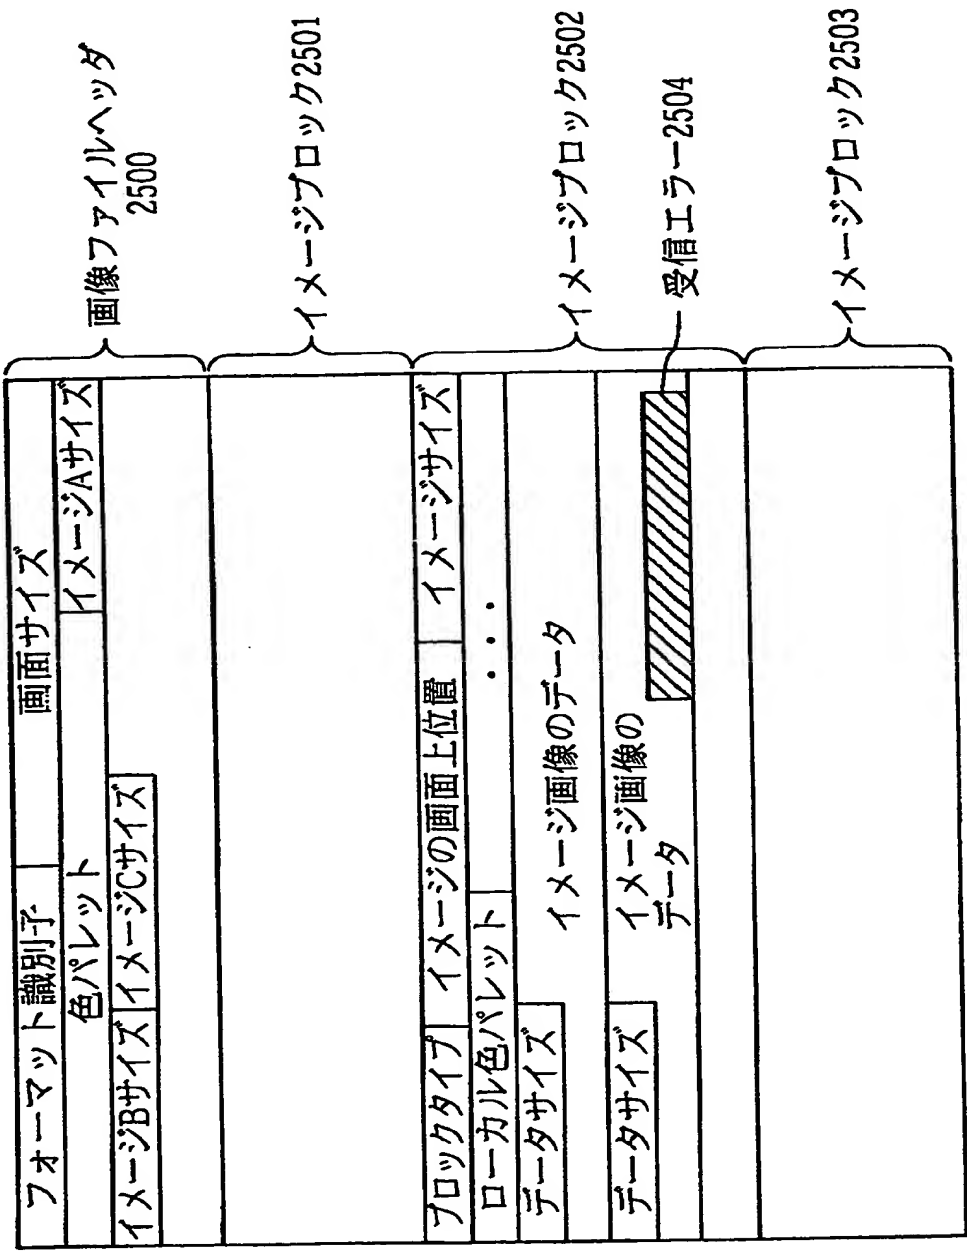 フォーマット識別子 画面サイズ
色パレット イメージAサイズ
イメージBサイズ イメージCサイズ
画像ファイルヘッダ
2500
イメージブロック2501
ブロックタイプ イメージの画面上位置 イメージサイズ
ローカル色パレット ・・・
データサイズ
イメージ画像のデータ
データサイズ
イメージ画像の
データ
イメージブロック2502
受信エラー2504
イメージブロック2503